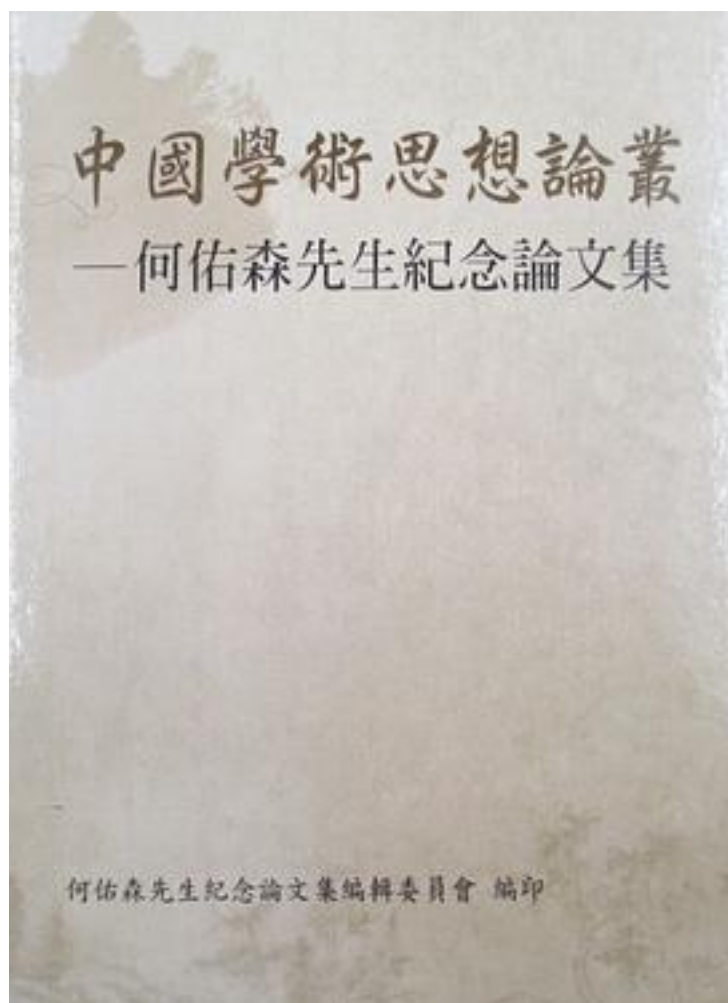 中國學術思想論叢
—何佑森先生紀念論文集
何佑森先生紀念論文集編輯委員會 編印